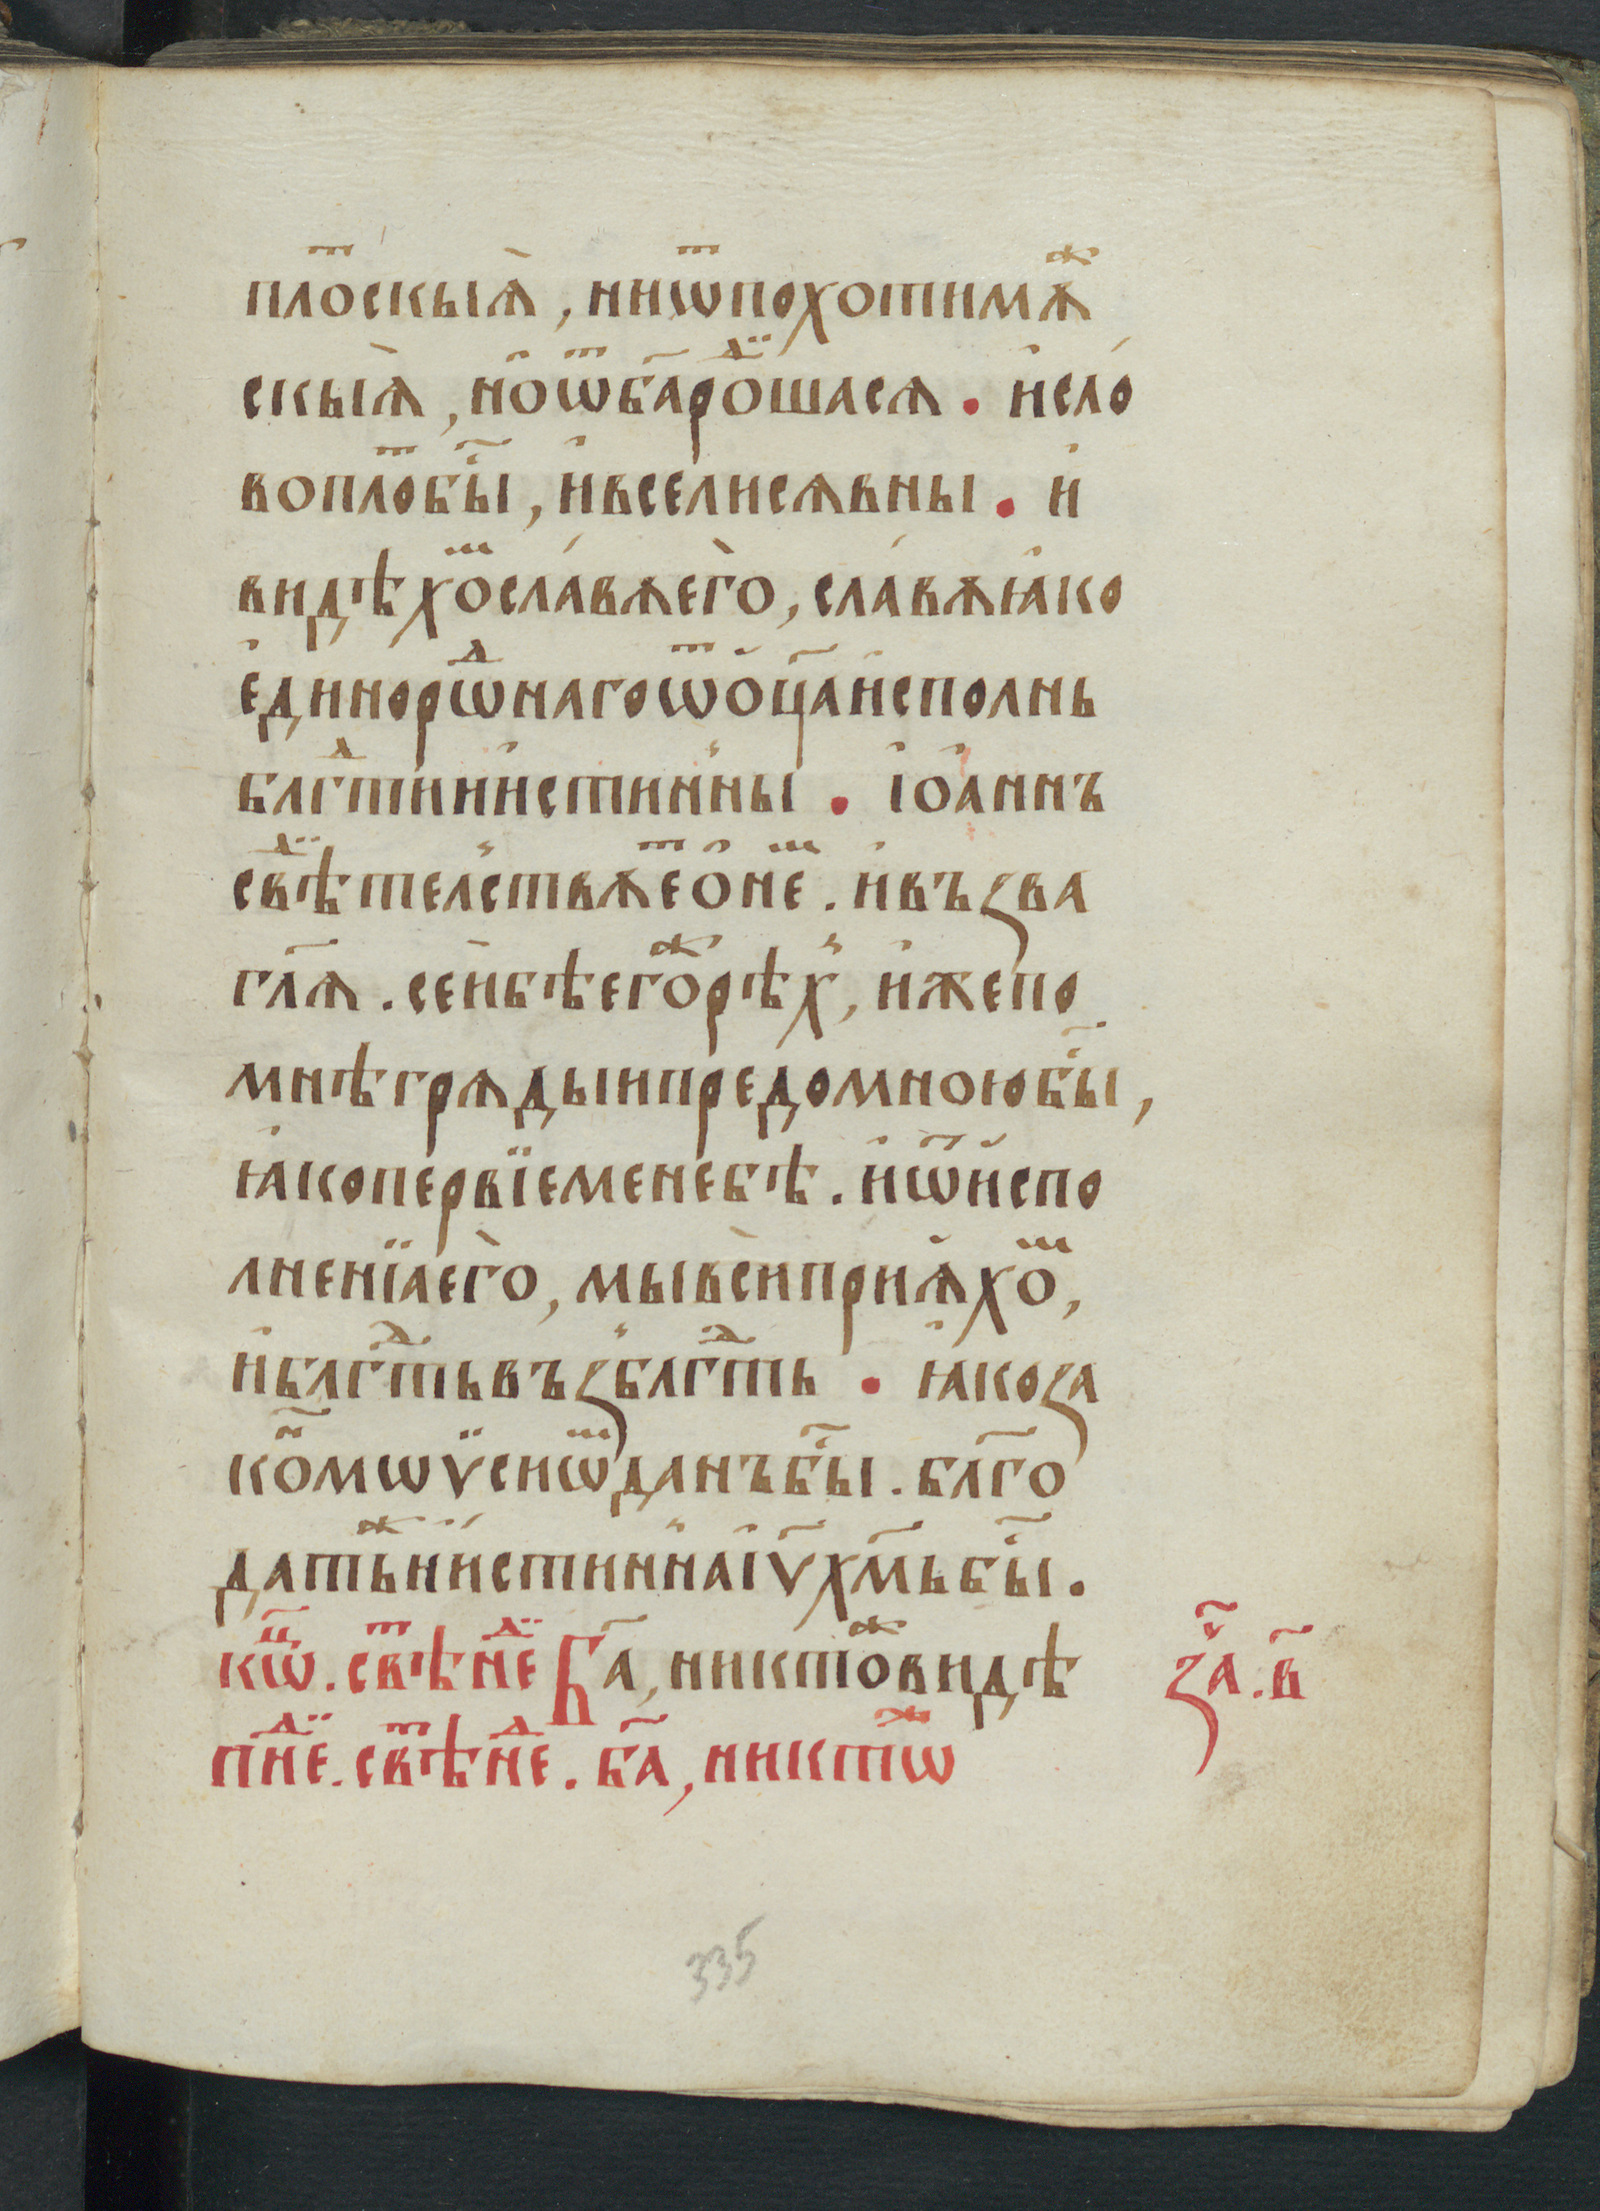 плоⷮскыѧ̀, ниѿпохотимѧⷤ
скыѧ̀, но̑ѿба҃роⷣшасѧ. и҆сло́
воплоⷮбы҃, и҆вселисѧвны. и҆
видѣхоⷨсла́вѫєго̀, сла́вѫꙗ҆ко
є҆динорѡⷣнагоѿо҆ц҃аи҆сполнь
блгⷣтии҆истинны. і҆ѡа҆ннъ
свⷣѣтельствꙋеⷮо҆неⷨ. и҆възва
гл҃ѧ. се́ибѣегоⷤрѣхъ, и҆жепо
мнѣгрѧдыипредомноюбы҃,
ꙗ҆копервїеменебѣ. и҆ѿи҆спо
лненїаего̀, мывсѝприѧ҆хоⷨ,
и҆блгⷣтьвъзблгⷣть. ꙗ҆коза
коⷩ҇мѡѵсеѡⷨданъбы҃. бл҃го
датьⷤии҆стиннаі҆ѵ҃хм҃ьбы҃.
кѡⷰ҇. свⷮѣнеⷣ Ба҃, никтоⷤвидѣ
пнеⷣ. свⷮѣнеⷣ. ба҃, никтѡⷤ
за҃. в҃
335